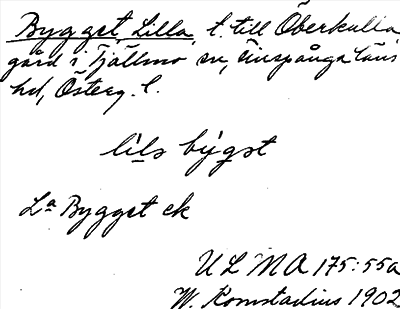 Bygget, Lilla, t. till Överkulla
gård i Tjällmo sn, Finspånga läns
hd, Österg. l.
lìls býgst
La Bygget ek
ULMA 175:55a
W. Komstadius 1902